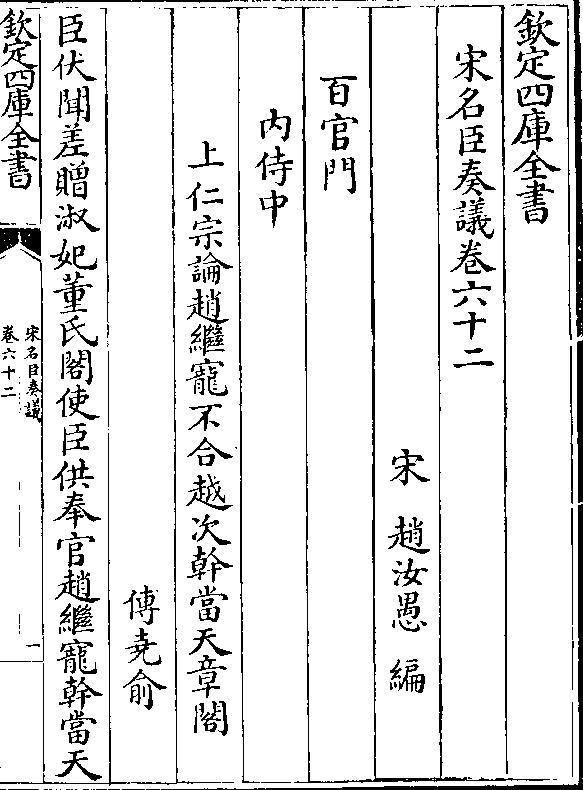 欽定四庫全書
宋名臣奏議卷六十二
宋 趙汝愚 編
百官門
內侍中
上仁宗論趙繼寵不合越次幹當天章閣
傅堯俞
臣伏聞差贈淑妃董氏閣使臣供奉官趙繼寵幹當天
欽定四庫全書
宋名臣奏議
卷六十二
一